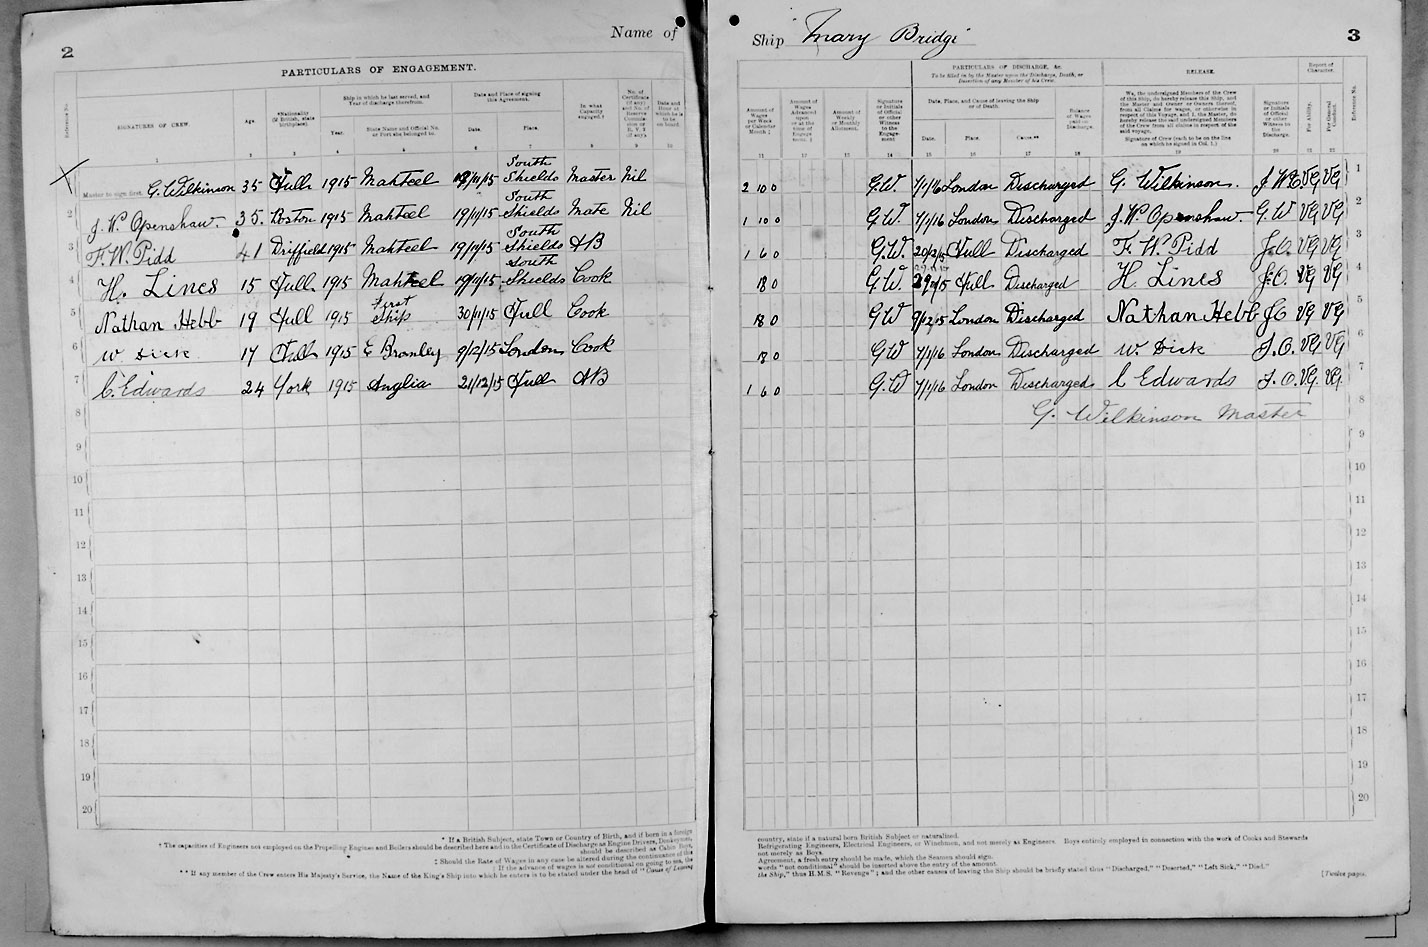 2
Name of
PARTICULARS OF ENGAGEMENT.
Reference No.
SIGNATURES OF CREW.
Age.
*Nationality (if British, state birthplace)
Ship in which he last served, and Year of discharge therefrom.
Year.
State Name and Official No. or Port she belonged to.
Date and Place of signing this Agreement.
Date.
Place.
In what Capacity engaged.†
No. of Certificate (if any) and No. of Reserve Commission or R.V.2 (if any).
Date and Hour at which he is to be on board.
1 2 3 4 5 6 7 7 8 9 10
1 Master to sign first. G. Wilkinson 35 Hull 1915 Mahteel 19/11/15 South Shields Master Nil
2 J. W. Openshaw. 35. Boston 1915 Mahteel 19/11/15 South Shields Mate Nil
3 F. W. Pidd 41 Driffield 1915 Mahteel 19/11/15 South Shields AB
4 H. Lines 15 Hull 1915 Mahteel 19/11/15 South Shields Cook
5 Nathan Hebb 19 Hull 1915 First Ship 30/11/15 Hull Cook
6 W Dick 17 Hull 1915 E Bromley 9/12/15 London Cook
7 C. Edwards 24 York 1915 Anglia 21/12/15 Hull AB
8
9
10
11
12
13
14
15
16
17
18
19
20
* If a British Subject, state Town or Country of Birth, and if born in a foreign
† The capacities of Engineers not employed on the Propelling Engines and Boilers should be described here and in the Certificate of Discharge as Engine Drivers, Donkeymen,
should be described as Cabin Boys,
‡ Should the Rate of Wages in any case be altered during the continuance of this
If the advance of wages is not conditional on going to sea, the
** If any member of the Crew enters His Majesty's Service, the Name of the King's Ship into which he enters is to be stated under the head of "Cause of Leaving
Ship "Mary Bridge"
3
PARTICULARS OF DISCHARGE, &c.
To be filled in by the Master upon the Discharge, Death, or Desertion of any Member of his Crew.
RELEASE.
Report of Character.
Amount of Wages per Week or Calendar Month.‡
Amount of Wages Advanced upon or at the time of Engagement.
Amount of Weekly or Monthly Allotment.
Signature or Initials of Official or other Witness to the Engagement
Date, Place, and Cause of leaving the Ship or of Death.
Date.
Place.
Cause.**
Balance of Wages paid on Discharge.
We, the undersigned Members of the Crew of this Ship, do hereby release this Ship, and the Master and Owner or Owners thereof, from all Claims for wages, or otherwise in respect of this Voyage, and I, the Master, do hereby release the said undersigned Members of the Crew from all claims in respect of the said voyage.
Signature of Crew (each to be on the line on which he signed in Col. 1.)
Signature or Initials of Official or other Witness to the Discharge.
For Ability.
For General Conduct.
Reference No.
11 12 13 14 15 16 17 18 19 20 21 22
2 10 0 G.W. 7/1/16 London Discharged G. Wilkinson. VG VG 1
1 10 0 G.W. 7/1/16 London Discharged J. W. Openshaw. G.W VG VG 2
1 6 0 G.W. Hull Discharged F. W. Pidd J.O. VG VG 3
18 0 G.W. Hull Discharged H. Lines J.O. VG VG 4
18 0 G.W 9/12/15 London Discharged Nathan Hebb J.O VG VG 5
18 0 G.W 7/1/16 London Discharged W. Dick J.O. VG VG 6
1 6 0 G.W 7/1/16 London Discharged C Edwards J.O. VG. VG. 7
G. Wilkinson Master 8
9
10
11
12
13
14
15
16
17
18
19
20
country, state if a natural born British Subject or naturalised.
Refrigerating Engineers, Electrical Engineers, or Winchmen, and not merely as Engineers. Boys entirely employed in connection with the work of Cooks and Stewards
not merely as Boys.
Agreement, a fresh entry should be made, which the Seaman should sign.
words "not conditional" should be inserted above the entry of the amount.
the Ship," thus H.M.S. "Revenge"; and the other causes of leaving the Ship should be briefly stated thus "Discharged," "Deserted," "Left Sick," "Died."
[Twelve pages.